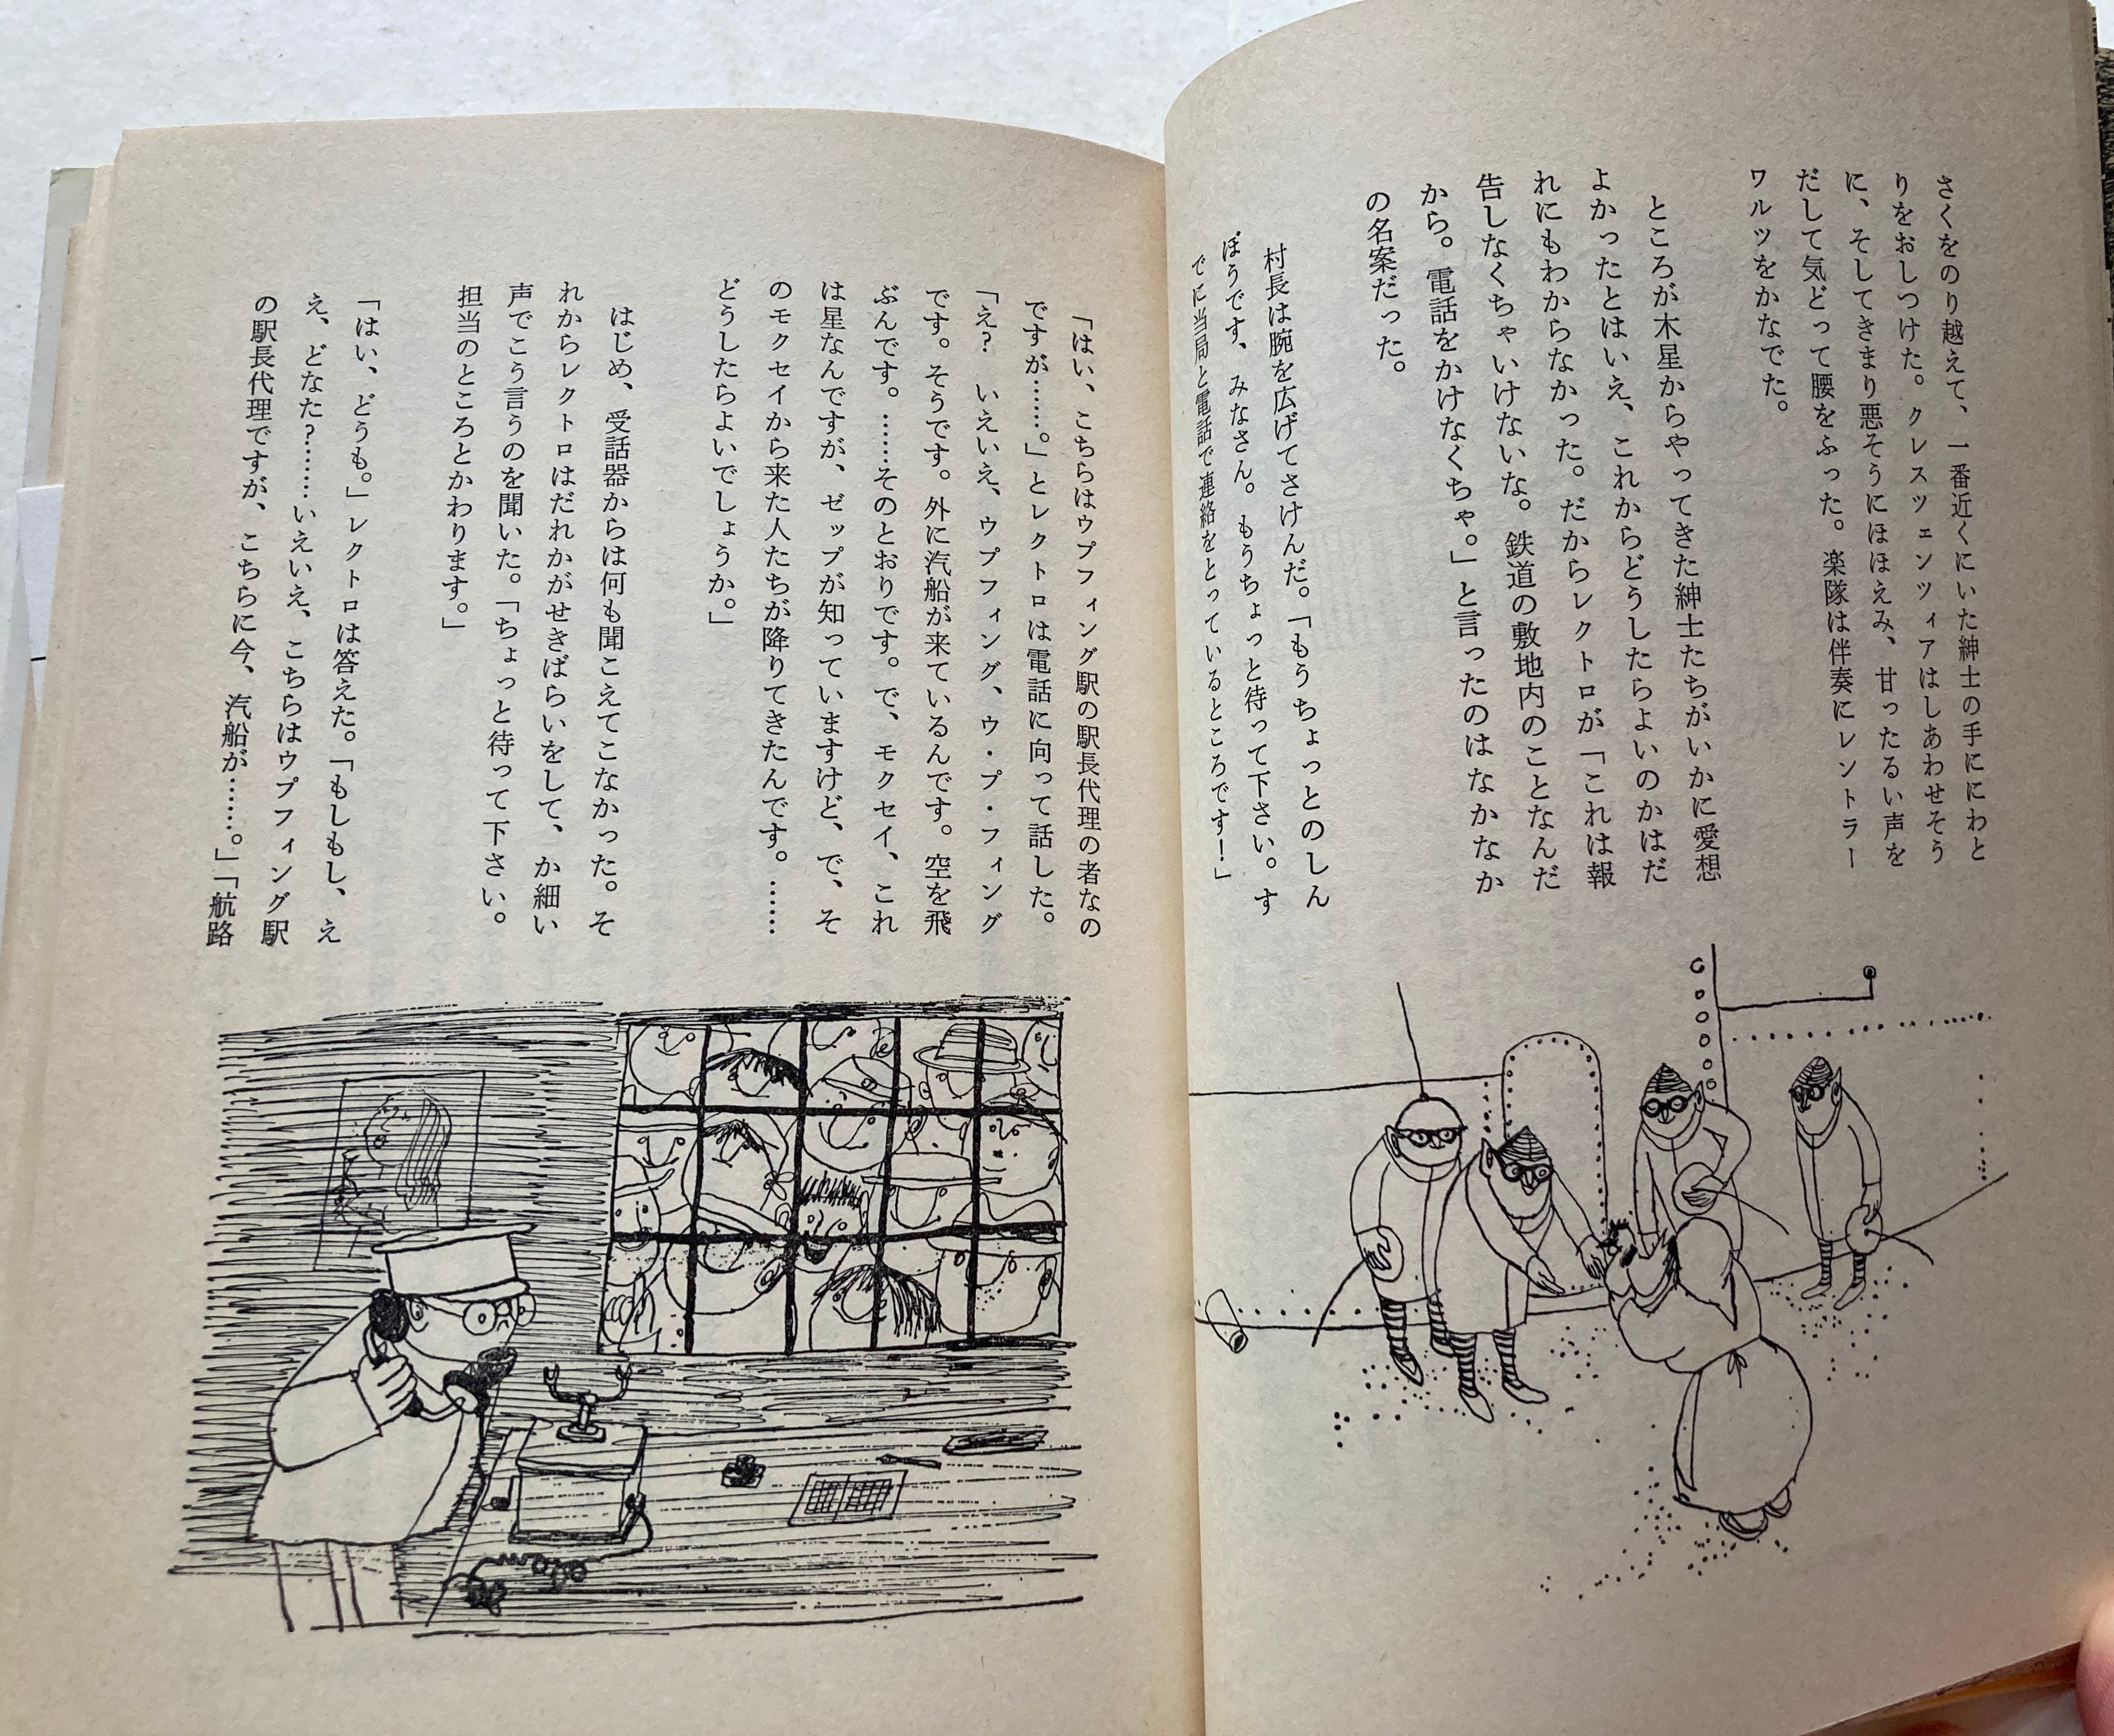 さくをのり越えて、一番近くにいた紳士の手ににわと
りをおしつけた。クレスツェンツィアはしあわせそう
に、そしてきまり悪そうにほほえみ、甘ったるい声を
だして気どって腰をふった。楽隊は伴奏にレントラー
ワルツをかなでた。
ところが木星からやってきた紳士たちがいかに愛想
よかったとはいえ、これからどうしたらよいのかはだ
れにもわからなかった。だからレクトロが「これは報
告しなくちゃいけないな。鉄道の敷地内のことなんだ
から。電話をかけなくちゃ。」と言ったのはなかなか
の名案だった。
村長は腕を広げてさけんだ。「もうちょっとのしん
ぼうです、みなさん。もうちょっと待って下さい。す
でに当局と電話で連絡をとっているところです！」
「はい、こちらはウプフィング駅の駅長代理の者なの
ですが……。」とレクトロは電話に向って話した。
「え？　いえいえ、ウプフィング、ウ・プ・フィング
です。そうです。外に汽船が来ているんです。空を飛
ぶんです。……そのとおりです。で、モクセイ、これ
は星なんですが、ゼップが知っていますけど、で、そ
のモクセイから来た人たちが降りてきたんです。……
どうしたらよいでしょうか。」
はじめ、受話器からは何も聞こえてこなかった。そ
れからレクトロはだれかがせきばらいをして、か細い
声でこう言うのを聞いた。「ちょっと待って下さい。
担当のところとかわります。」
「はい、どうも。」レクトロは答えた。「もしもし、え
え、どなた？……いえいえ、こちらはウプフィング駅
の駅長代理ですが、こちらに今、汽船が……。」「航路